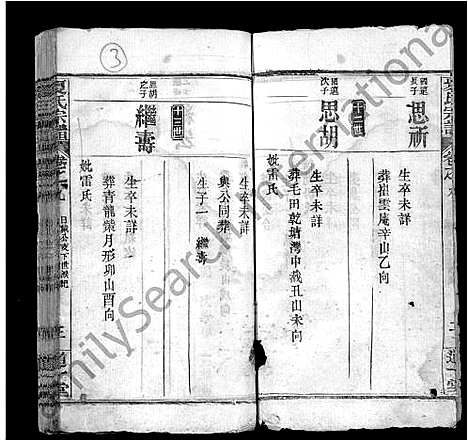 ③
國選長子
思祈
生卒未詳
葬崔雲庵辛山乙向
十二世
國選次子
思胡
生卒未詳
葬毛田乾塘灣中截丑山未向
妣雷氏
生卒未詳
與公同葬
生子一 繼壽
十三世
思胡之子
繼壽
生卒未詳
葬青龍嘴月形卯山酉向
妣雷氏
夏氏宗譜
道一堂
FamilySearch International